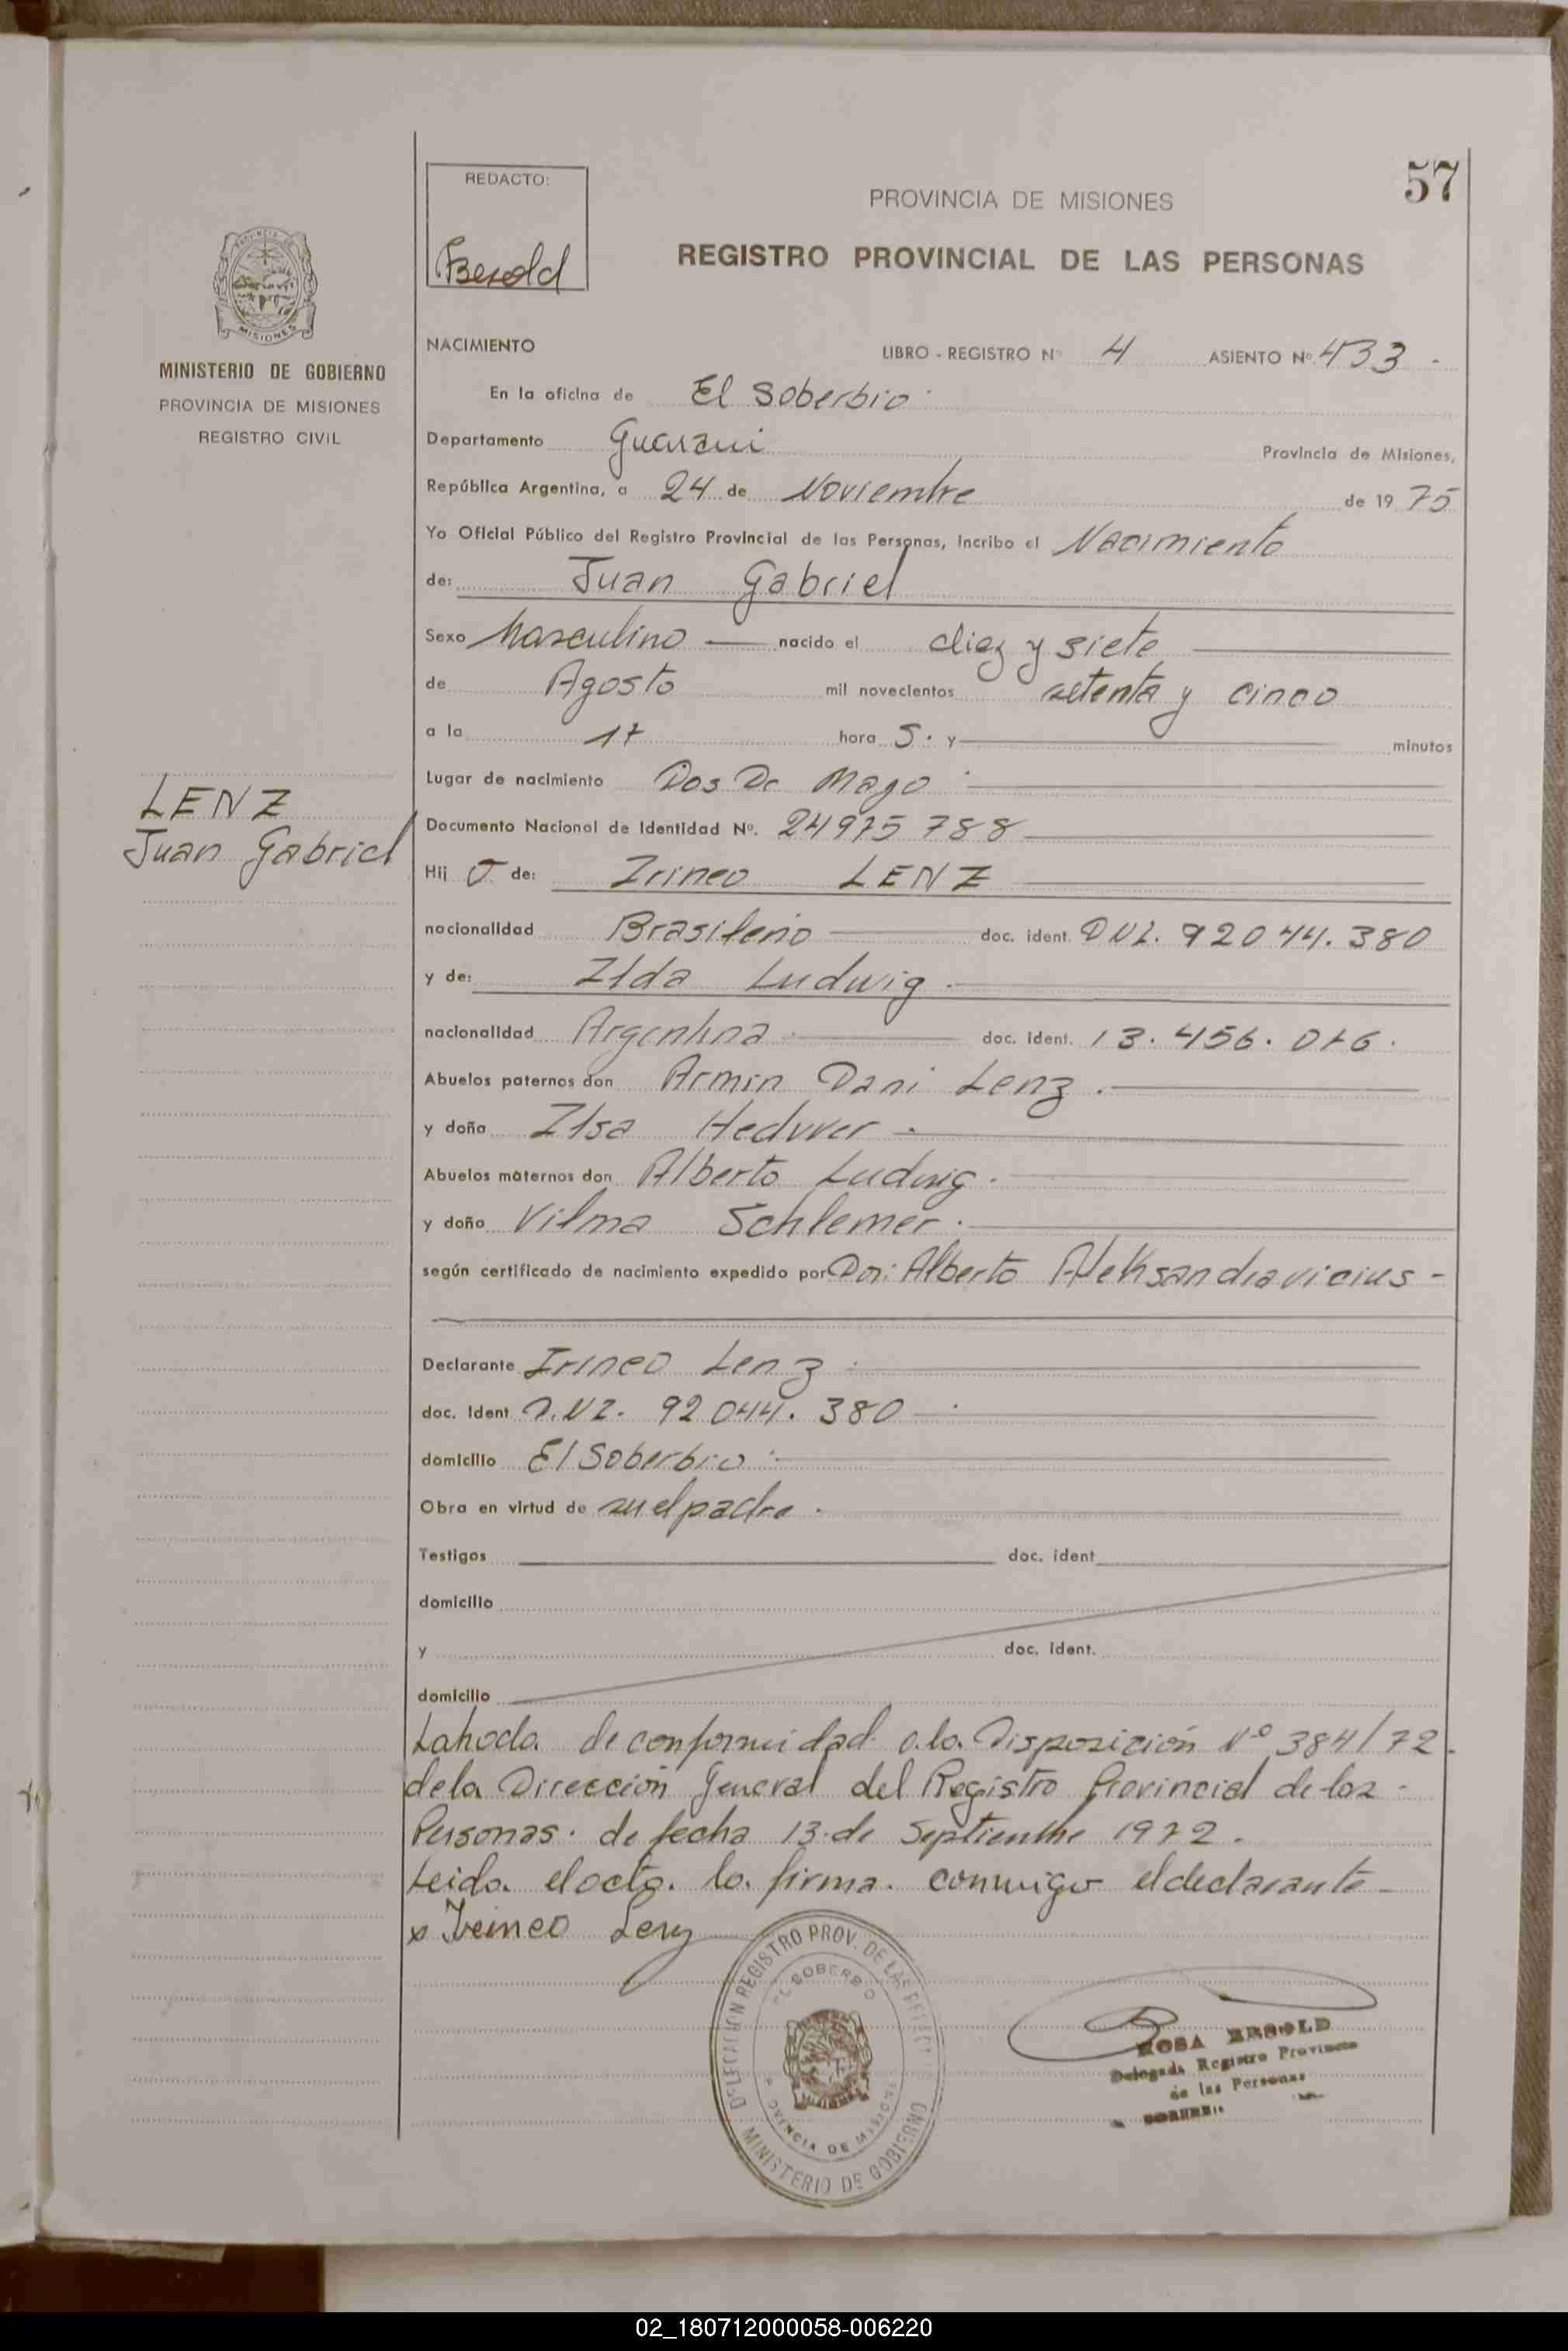 57
REDACTO:
PROVINCIA DE MISIONES
REGISTRO PROVINCIAL DE LAS PERSONAS
PROVINCIA DE
MISIONES
MINISTERIO DE GOBIERNO
PROVINCIA DE MISIONES
REGISTRO CIVIL
NACIMIENTO LIBRO - REGISTRO Nº 4 ASIENTO Nº 433 -
En la oficina de El Soberbio
Departamento Guarani Provincia de Misiones,
República Argentina, a 24 de Noviembre de 19 75
Yo Oficial Público del Registro Provincial de las Personas, incribo el Nacimiento
de: Juan Gabriel
Sexo Masculino — nacido el diez y siete
de Agosto mil novecientos setenta y cinco
a la 17 hora S. y minutos
Lugar de nacimiento Dos De Mayo
LENZ
Juan Gabriel
Documento Nacional de Identidad Nº. 24975788
Hij o de: Irineo LENZ
nacionalidad Brasileño doc. ident. DNI. 92044.380
y de: Ilda Ludwig.
nacionalidad Argentina doc. ident. 13.456.076.
Abuelos paternos don Armin Dani Lenz.
y doña Ilsa
Abuelos maternos don Alberto Ludwig.
y doña Vilma Schlemer.
según certificado de nacimiento expedido por Dr: Alberto Aleksandravicius -
Declarante Irineo Lenz
doc. ident D.NI. 92044.380
domicilio El Soberbio
Obra en virtud de su el padre.
Testigos doc. ident
domicilio
y doc. ident.
domicilio
de conformidad a la Disposición Nº 384/72.
de la Dirección General del Registro Provincial de las
Personas. de fecha 13. de Septiembre 1972.
Leida el acta. la firma. conmigo el declarante
x Irineo Lenz
DELEGACION REGISTRO PROV. DE LAS
EL SOBERBIO
PROVINCIA DE MISIONES
MINISTERIO DE GOBIERNO
ROSA
Delegada Registro Provincia
de las Personas
02_180712000058-006220